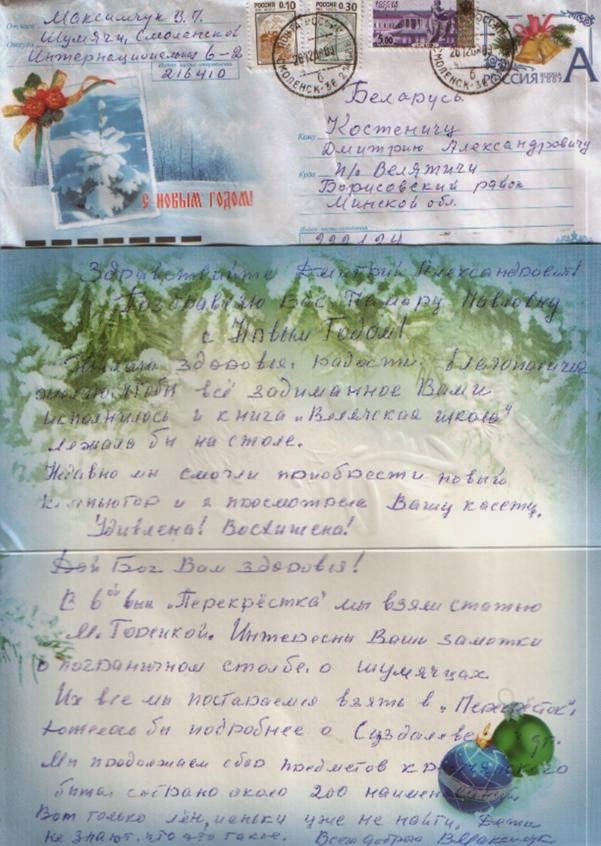 Максимчук В. П.
Шумячи, Смоленской
Интернациональная 6-2
216410
С НОВЫМ ГОДОМ!
РОССИЯ 0.10
РОССИЯ 0.30
5.00
26 12
СМОЛЕНСК-3
РОССИЯ
А
Беларусь
Кому
Костеничу
Дмитрию Александровичу
Куда
п/о Велятичи
Борисовский район
Минской обл.
222124
Здравствуйте Дмитрий Александрович!
Поздравляю Вас Тамару Павловну
с Новым Годом!
Желаю здоровья, радости, благополучия
чтобы всё задуманное Вами
исполнилось и книга „Велячская школа"
лежала бы на столе.
Недавно мы смогли приобрести новый
компьютор и я просмотрела Вашу касету.
Удивлена! Восхищена!
Дай Бог Вам здоровья!
В 6ой вып „Перекрёстка" мы взяли статью
М. Горецкой. Интересны Ваши заметки
о пограничном столбе, о шумячцах.
Их все мы постараемся взять в „Перекрёсток",
Хотелось бы подробнее о Суздалеве
Мы продолжаем сбор предметов
быта. собрано около 200
Вот только лён, пеньки уже не найти, Дети
не знают, что это такое. Всего доброго